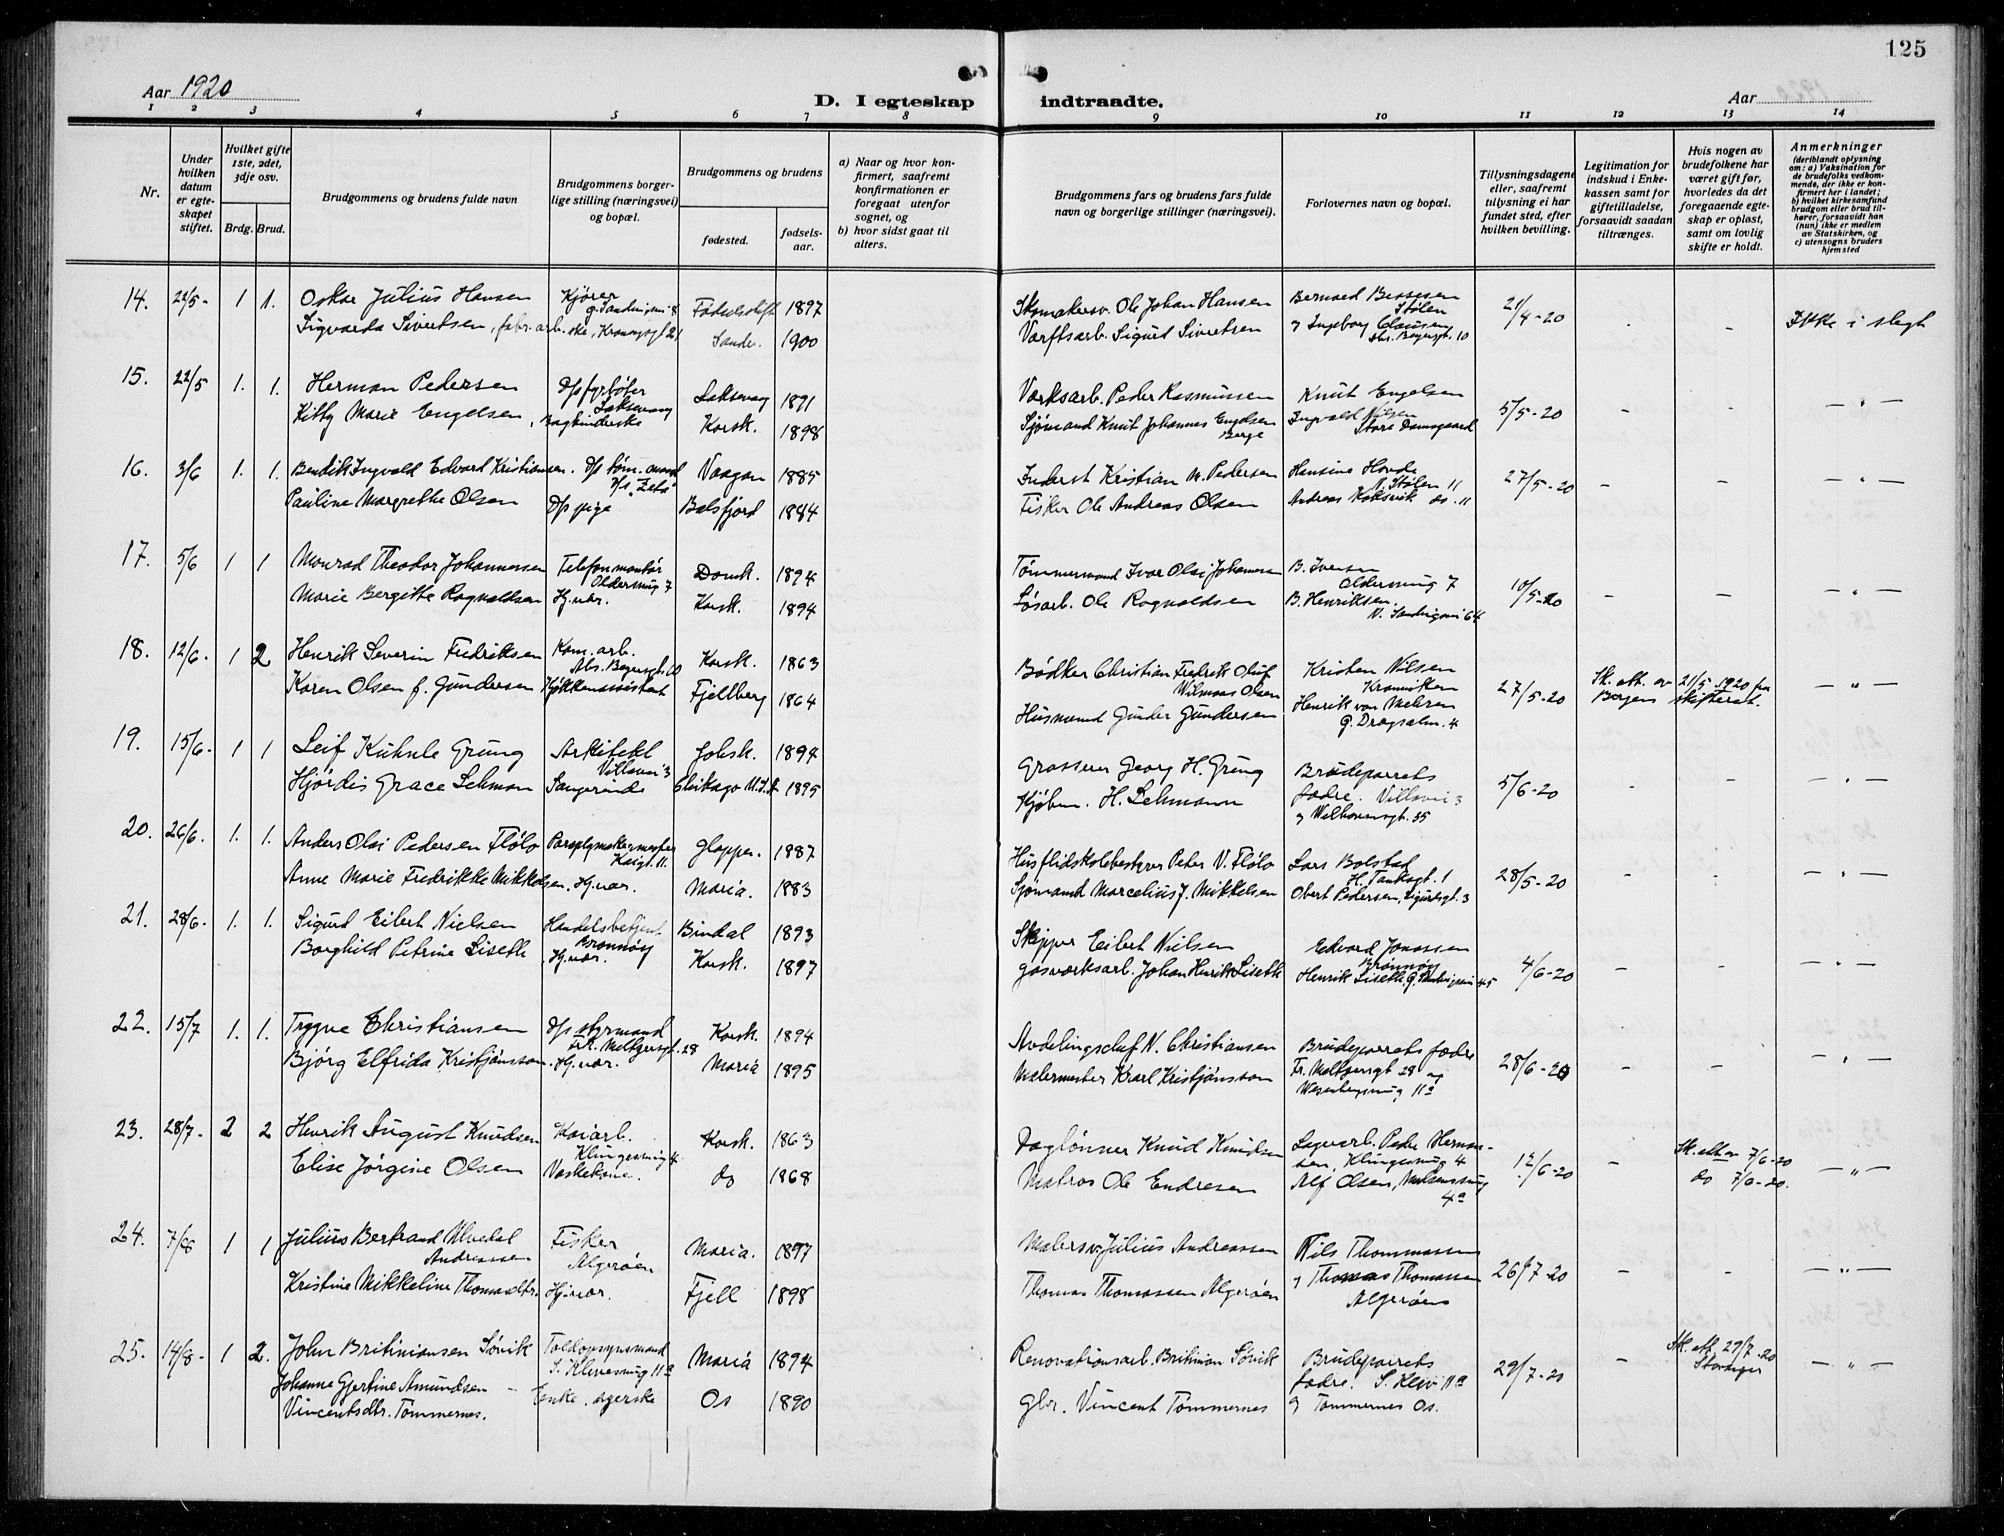 125
Aar 1920
D. I egteskap
indtraadte.
Aar
1 2 3 4 5 6 7 8 9 10 11 12 13 14
Nr.
Under hvilken datum er egteskapet stiftet.
Hvilket gifte 1ste, 2det, 3dje osv.
Brdg. Brud.
Brudgommens og brudens fulde navn
Brudgommens borgerlige stilling (næringsvei) og bopæl.
Brudgommens og brudens
fødested.
fødselsaar.
a) Naar og hvor konfirmert, saafremt konfirmationen er foregaat utenfor sognet, og
b) hvor sidst gaat til alters.
Brudgommens fars og brudens fars fulde navn og borgerlige stillinger (næringsvei).
Forlovernes navn og bopæl.
Tillysningsdagene eller, saafremt tillysning ei har fundet sted, efter hvilken bevilling.
Legitimation for indskud i Enkekassen samt for giftetilladelse, forsaavidt saadan tiltrænges.
Hvis nogen av brudefolkene har været gift før, hvorledes da det foregaaende egteskap er opløst, samt om lovlig skifte er holdt.
Anmerkninger
(deriblandt oplysning om: a) Vaksination for de brudefolks vedkommende, der ikke er konfirmert her i landet; b) hvilket kirkesamfund brudgom eller brud tilhører, forsaavidt han (hun) ikke er medlem av Statskirken, og c) utensogns bruders hjemsted
14. 22/5- 1 1. Oskar Julius Hansen Kjører 1897 Skomakersv. Ole Johan Hansen Stølen 21/4-20 - - Ikke i slegt
Sigvarda Sivertsen, fabr. arb.ske, 21 Sandv. 1900 Værftsarb. Sigurd Sivertsen og Ingeborg Clausen 10
15. 22/5 1. 1. Herman Pedersen D/s fyrbøter Laksevaag Laksevaag 1891 Værksarb. Peder Rasmussen Knut Engelsen 5/5-20 - - - " -
Kitty Marie Engelsen, Korsk. 1898 Sjømand Knut Johannes Engelsen Berge Ingvald Nilsen Store Damsgaard
16. 3/6 1. 1. Bendik Ingvald Edvard Kristiansen. D/s tøm. mand D/s "Zeta" Vaagan 1885 Inderst Kristian M. Pedersen Hansine Hovde N. Stølen 11 27/5-20 - - - " -
Pauline Margrethe Olsen D/s pige Balsfjord 1884 Fisker Ole Andreas Olsen Andreas do. 11
17. 5/6 1 1 Monrad Theodor Johannessen Telefonmontør Oldersmug 7 Domk. 1894 Tømmermand Ivar Olai Johannesen B. Iversen Oldersmug 7 10/5-20 - - - " -
Marie Bergitte Ragnvaldsen Hj. vær. Korsk. 1894 Løsarb. Ole Ragnvaldsen B. Henriksen N. Sandvigsvei 64
18. 12/6- 1 2 Henrik Severin Fredriksen Kom. arb. Abs. Beyersgt. 10 Korsk. 1863 Bødker Christian Fredrik Oluf Olsen Kristen Nilsen 27/5-20 Sk. att. av 21/5 1920 fra Bergen skifteret. - " -
Karen Olsen f. Gundersen Kjøkkenassistent Fjellberg 1864 Husmand Gunder Gundersen Henrik von Mehren 4
19. 15/6- 1 1 Leif Kuhnle Grung Arkitekt Villavei 3 Johsk. 1894 Grosserer Georg H. Grung Brudeparrets fædre. Villavei 3 5/6-20 - - - " -
Hjørdis Grace Lehmann Sangerinde Chikago U.S.A 1895 Kjøbm. H. Lehmann og Welhavensgt. 35
20. 26/6. 1. 1. Anders Olai Pedersen Flølo Paraplymakermester Kaigt. 11. Gloppen. 1887 Husflidskolebestyrer Peter V. Flølo Lars Bolstad H. Tanksgt. 1 28/5-20 - - - " -
Anne Marie Fredrikke Mikkelsen. Hj. vær. Maria. 1883 Sjømand Marcelius J. Mikkelsen Obert Pedersen, Sigurdsgt. 3
21. 28/6. 1. 1. Sigurd Eibert Nielsen Handelsbetjent Brønnøy Bindal 1893 Skipper Eibert Nielsen Edvard Jonassen Brønnøy 4/6-20 - - - " -
Borghild Petrine Liseth Hj. vær. Korsk. 1897 Gasværksarb. Johan Henrik Liseth Henrik Liseth, G. Sandvigsvei 45
22. 15/7 1. 1. Trygve Christiansen D/s styrmand Fr. Meltzersgt. 28 Korsk. 1894 Avdelingschef N. Christiansen Brudeparrets fædre 28/6-20 - - - " -
Bjørg Elfrida Kristjánsson. Hj. vær. Maria 1895 Malermester Karl Kristjánsson Fr. Meltzersgt 28 og 11a
23. 28/7- 2 2 Henrik August Knudsen Kaiarb. Klingesmug 4. Korsk. 1863 Daglønner Knud Knudsen Lagerarb. Peder Hermansen, Klingesmug 4 12/6-20 - Sk. att. av 7/6-20 - " -
Elise Jørgine Olsen Vaskekone. do 1868 Matros Ole Endresen Alf Olsen, 4a do 7/6-20.
24. 7/8 1 1 Julius Bertrand Ulvedal Andreassen Fisker Algerøen Maria. 1897 Malersv. Julius Andreassen Nils Thommassen 26/7-20 - - - " -
Kristine Mikkeline Thomasdtr. Hj. vær. Fjell 1898 Thomas Thomassen Algerøen og Thomas Thomassen Algerøen
25. 14/8- 1 2. John Britiniansen Søvik Toldopsynsmand 11a Maria 1894 Renovationsarb. Britinian Søvik Brudeparrets fædre. 11a 29/7-20 - Sk. att. 29/7-20 Stavanger - " -
Johanne Gjertine Amundsen Vincentsdtr. Tømmernes. Enke. syerske Os 1890 Gbr. Vincent Tømmernes og Tømmernes Os.